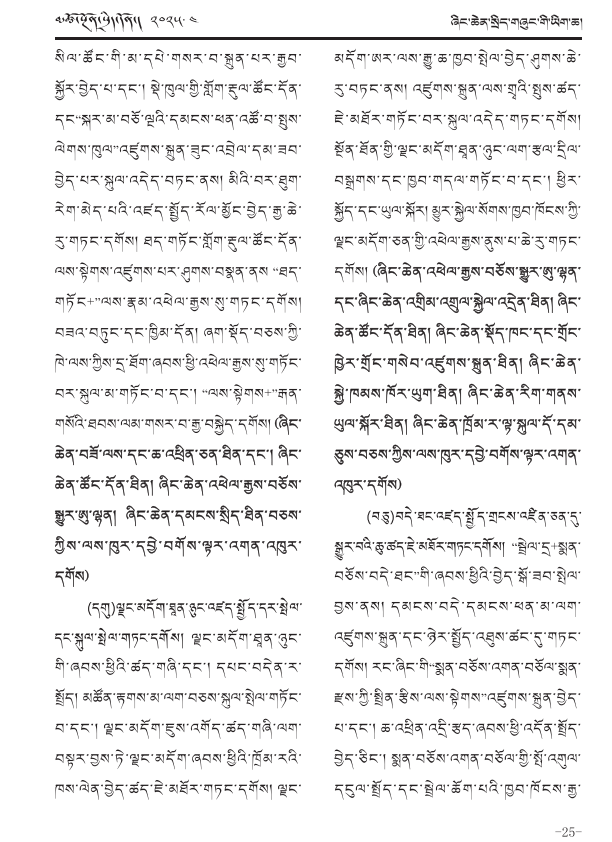 མཚོ་སྔོན་ཁྲི་དཔོན། ༢༠༢༥·༤
ཞིང་ཆེན་སྲིད་གཞུང་གི་ཡིག་ཆ།
སིལ་ཚོང་གི་མ་དཔེ་གསར་བ་སྐྲུན་པར་རྒྱབ་
སྐྱོར་བྱེད་པ་དང་། སྡེ་ཁུལ་གྱི་གློག་རྡུལ་ཚོང་དོན་
དང་“སྐར་མ་བཅོ་ལྔའི་དམངས་ཕན་འཚོ་བ་སྤུས་
ལེགས་ཁུལ”འཛུགས་སྐྲུན་ཟུང་འབྲེལ་དམ་ཟབ་
བྱེད་པར་སྐུལ་འདེད་བཏང་ནས། མིའི་བར་ཐུག་
རེག་མེད་པའི་འཛད་སྤྱོད་རོལ་མྱོང་བྱེད་རྒྱ་ཆེ་
རུ་གཏང་དགོས། ཐད་གཏོང་གློག་རྡུལ་ཚོང་དོན་
ལས་སྟེགས་འཛུགས་པར་ཤུགས་བསྣན་ནས “ཐད་
གཏོང+”ལས་རྣམ་འཕེལ་རྒྱས་སུ་གཏང་དགོས།
བཟའ་བཏུང་དང་ཁྱིམ་དོན། ཞག་སྡོད་བཅས་ཀྱི་
ཁེ་ལས་ཀྱིས་དྲ་ཐོག་ཞབས་ཕྱི་འཕེལ་རྒྱས་སུ་གཏོང་
བར་སྐུལ་མ་གཏོང་བ་དང་། “ལས་སྟེགས+”རྒན་
གསོའི་ཐབས་ལམ་གསར་བ་རྒྱ་བསྐྱེད་དགོས། (ཞིང་
ཆེན་བཟོ་ལས་དང་ཆ་འཕྲིན་ཅན་ཐིན་དང་། ཞིང་
ཆེན་ཚོང་དོན་ཐིན། ཞིང་ཆེན་འཕེལ་རྒྱས་བཅོས་
སྒྱུར་ཨུ་ལྷན། ཞིང་ཆེན་དམངས་སྲིད་ཐིན་བཅས་
ཀྱིས་ལས་ཁུར་དབྱེ་བགོས་ལྟར་འགན་འཁུར་
དགོས)
(དགུ)ལྗང་མདོག་ཐྲན་ཉུང་འཛད་སྤྱོད་དར་སྤེལ་
དང་སྐུལ་སྤེལ་གཏང་དགོས། ལྗང་མདོག་ཐྲན་ཉུང་
གི་ཞབས་ཕྱིའི་ཚད་གཞི་དང་། དཔང་བདེན་ར་
སྤྲོད། མཚོན་རྟགས་མ་ལག་བཅས་སྐུལ་སྤེལ་གཏོང་
བ་དང་། ལྗང་མདོག་ཇུས་འགོད་ཚད་གཞི་ལག་
བསྟར་བྱས་ཏེ་ལྗང་མདོག་ཞབས་ཕྱིའི་ཁྲོམ་རའི་
ཁས་ལེན་བྱེད་ཚད་ཇེ་མཐོར་གཏང་དགོས། ལྗང་
མདོག་ཨར་ལས་རྒྱུ་ཆ་ཁྱབ་སྤེལ་བྱེད་ཤུགས་ཆེ་
རུ་བཏང་ནས། འཛུགས་སྐྲུན་ལས་གྲྭའི་སྤུས་ཚད་
ཇེ་མཐོར་གཏོང་བར་སྐུལ་འདེད་གཏང་དགོས།
སྔོན་ཐོན་གྱི་ལྗང་མདོག་ཐྲན་ཉུང་ལག་རྩལ་དྲིལ་
བསྒྲགས་དང་ཁྱབ་གདལ་གཏོང་བ་དང་། ཕྱིར་
སྐྱོད་དང་ཡུལ་སྐོར། མྱུར་སྐྱེལ་སོགས་ཁྱབ་ཁོངས་ཀྱི་
ལྗང་མདོག་ཅན་གྱི་འཕེལ་རྒྱས་ནུས་པ་ཆེ་རུ་གཏང་
དགོས། (ཞིང་ཆེན་འཕེལ་རྒྱས་བཅོས་སྒྱུར་ཨུ་ལྷན་
དང་ཞིང་ཆེན་འགྲིམ་འགྲུལ་སྐྱེལ་འདྲེན་ཐིན། ཞིང་
ཆེན་ཚོང་དོན་ཐིན། ཞིང་ཆེན་སྡོད་ཁང་དང་གྲོང་
ཁྱེར་གྲོང་གསེབ་འཛུགས་སྐྲུན་ཐིན། ཞིང་ཆེན་
སྐྱེ་ཁམས་ཁོར་ཡུག་ཐིན། ཞིང་ཆེན་རིག་གནས་
ཡུལ་སྐོར་ཐིན། ཞིང་ཆེན་ཁྲོམ་ར་ལྟ་སྐུལ་དོ་དམ་
ཅུས་བཅས་ཀྱིས་ལས་ཁུར་དབྱེ་བགོས་ལྟར་འགན་
འཁུར་དགོས)
(བཅུ)བདེ་ཐང་འཛད་སྤྱོད་གྲངས་འཛིན་ཅན་དུ་
སྒྱུར་བའི་ཆུ་ཚད་ཇེ་མཐོར་གཏང་དགོས། “སྦྲེལ་དྲ+སྨན་
བཅོས་བདེ་ཐང”གི་ཞབས་ཕྱིའི་བྱེད་སྒོ་ཟབ་སྤེལ་
བྱས་ནས། དམངས་བདེ་དམངས་ཕན་མ་ལག་
འཛུགས་སྐྲུན་དང་ཉེར་སྤྱོད་འཐུས་ཚང་དུ་གཏང་
དགོས། རང་ཞིང་གི“སྨན་བཅོས་འགན་བཅོལ་སྨན་
རྫས་ཀྱི་སྤྲིན་རྩིས་ལས་སྟེགས”འཛུགས་སྐྲུན་བྱེད་
པ་དང་། ཆ་འཕྲིན་འདྲི་རྩད་ཞབས་ཕྱི་འདོན་སྤྲོད་
བྱེད་ཅིང་། སྨན་བཅོས་འགན་བཅོལ་གྱི་སྤོ་འགུལ་
དངུལ་སྤྲོད་དང་སྦྲེལ་ཆོག་པའི་ཁྱབ་ཁོངས་རྒྱ་
-25-